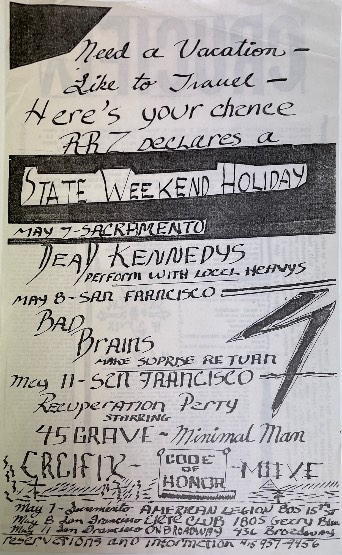 Need a Vacation -
Like to Travel -
Here's your chance
RR7 DECLARES a
STATE WEEKEND HOLIDAY
MAY 7-SACRAMENTO
DEAD KENNEDYS
PERFORM WITH LOCEL HEAVYS
MAY 8-SAN FARNCISCO
BAD
BRAINS
MAKE SOPRISE RETURN
May 11-SEN FRANCISCO
Recuperation Perty
STARRING
45 GRAVE - Minimal Man
CRCIFIX - CODE OF HONOR - MOVE
May 7-Sacramento AMERICAN LEGION
May 8 San Francisco CLUB 1805 Geary
May 11 San Francisco ON BROADWAY 435 Broadway
reservations and information